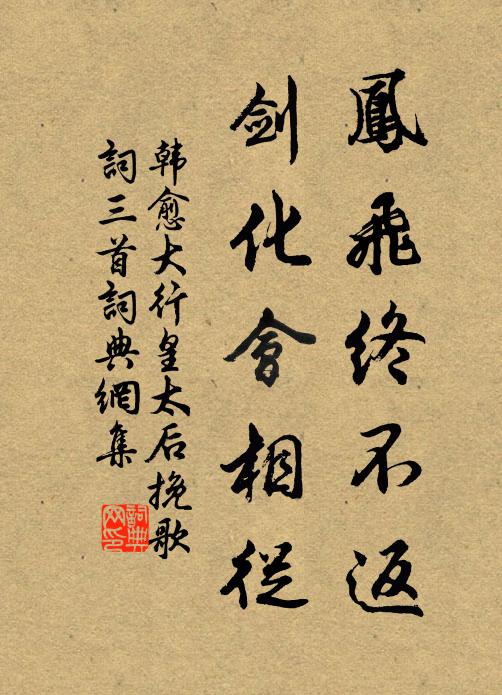 鳳飛終不返
劍化會相從
韩愈大行皇太后挽歌
詞三首詞典網集
詞典网印